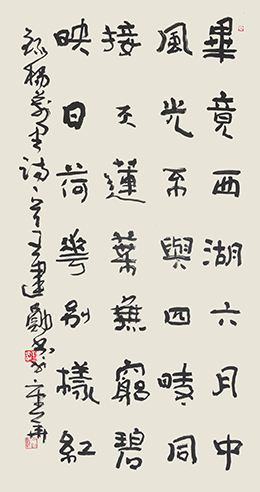 畢竟西湖六月中
風光不與四時同
接天蓮葉無窮碧
映日荷華別樣紅
錄楊萬里詩一首王建勛書於